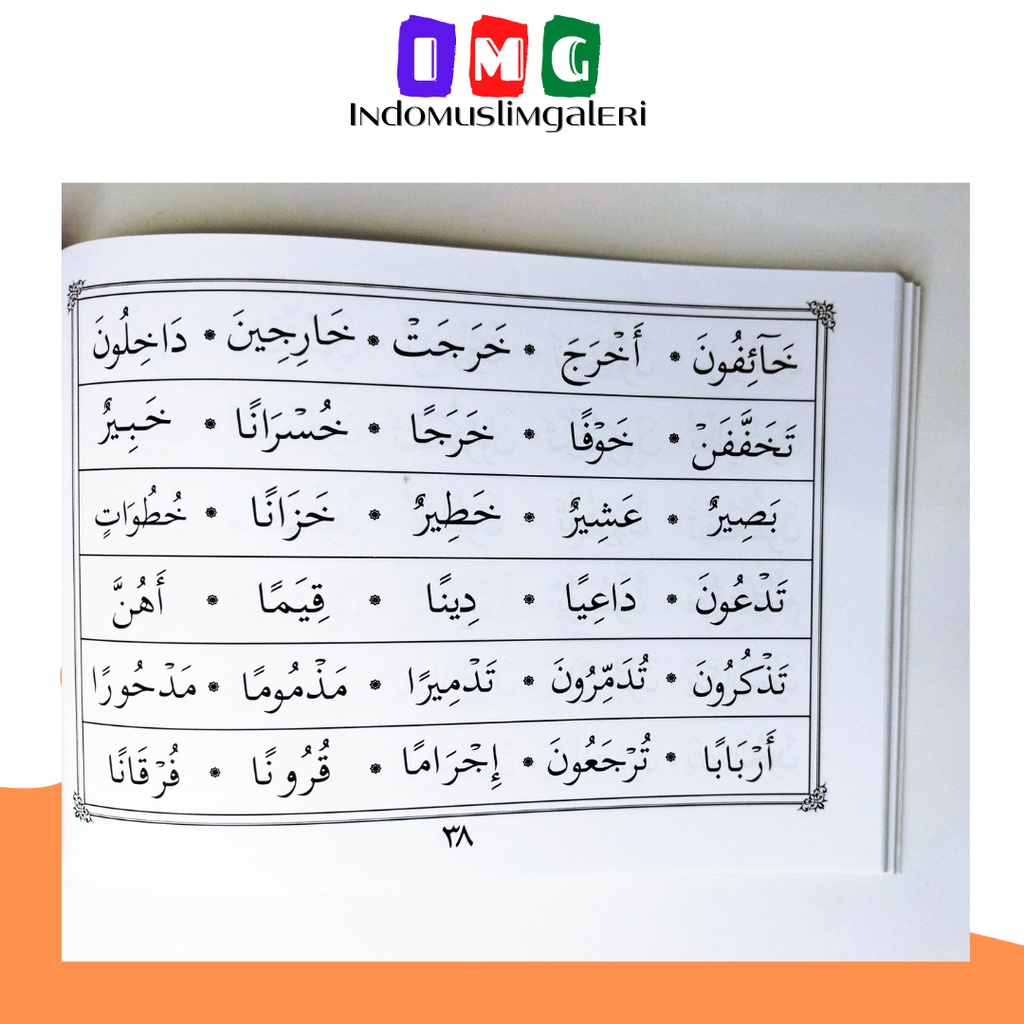 IMG
Indomuslimgaleri
خَآئِفُونَ * أَخْرَجَ * خَرَجَتْ * خَارِجِينَ * دَاخِلُونَ
تَخَفَّفَنْ * خَوْفًا * خَرَجًا * خُسْرَانًا * خَبِيرٌ
بَصِيرٌ * عَشِيرٌ * خَطِيرٌ * خَزَانًا * خُطُوَاتٍ
تَدْعُونَ * دَاعِيًا * دِينًا * قِيَمًا * أَهُنَّ
تَذْكُرُونَ * تُدَمِّرُونَ * تَدْمِيرًا * مَذْمُومًا * مَدْحُورًا
أَرْبَابًا * تُرْجَعُونَ * إِجْرَامًا * قُرُونًا * فُرْقَانًا
٣٨